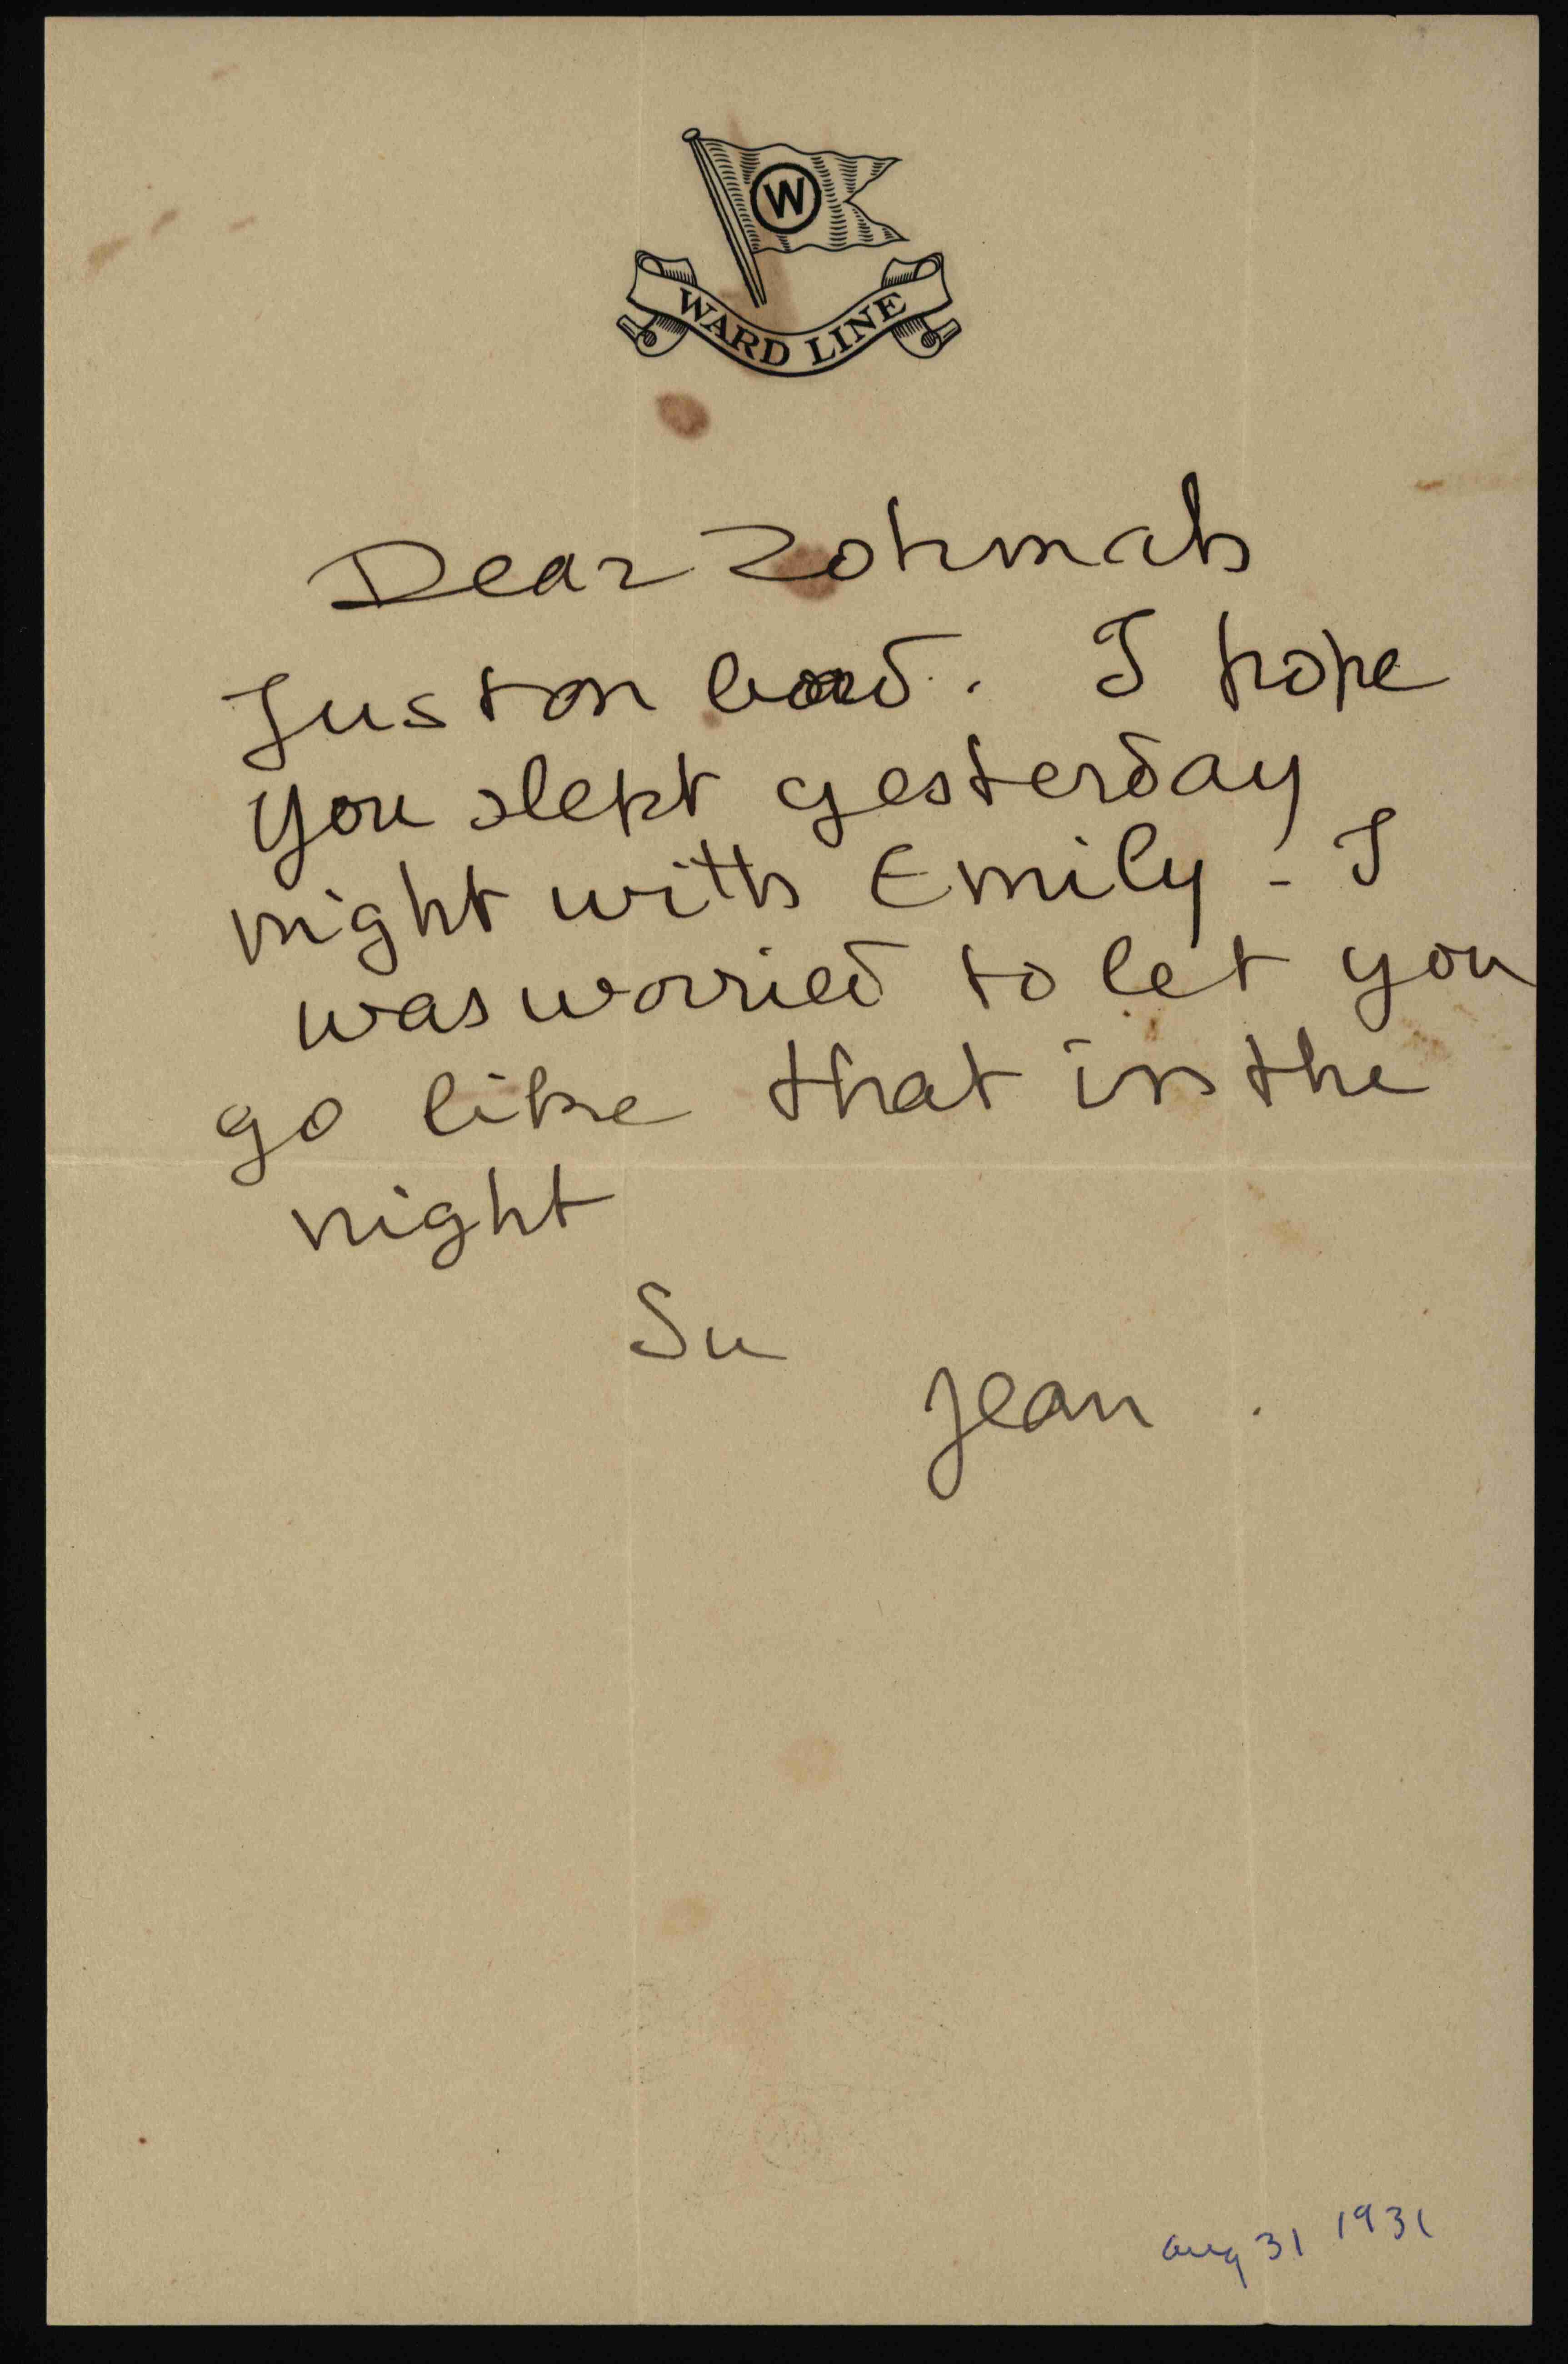 W
WARD LINE
Dear Zohmah
Just on board. I hope
you slept yesterday
night with Emily - I
was worried to let you
go like that in the
night
Su
Jean.
aug 31 1931